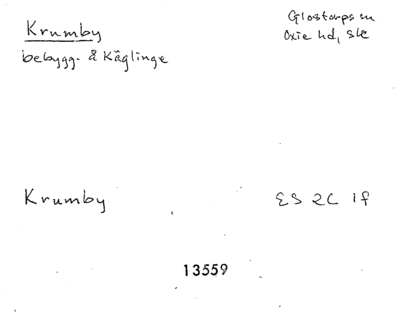 Krumby
Glostorps sn
bebygg. å Käglinge
Oxie hd, Sk
Krumby
ES 2C 1f
13559